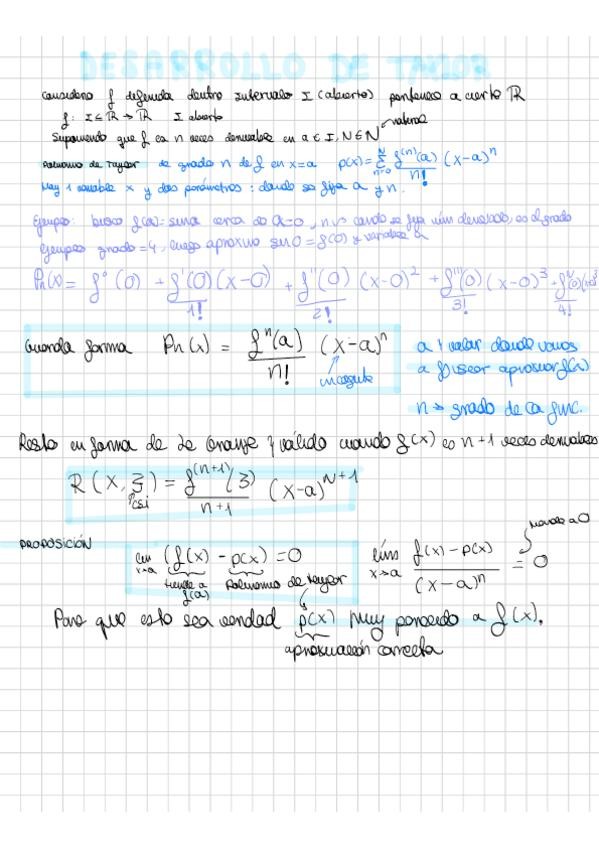 DESARROLLO DE TAYLOR
Considero f definida dentro intervalo I (abierto) pertenece a cierto ℝ
f: I ⊆ ℝ → ℝ I abierto
Suponiendo que f es n veces derivable en a ∈ I, N ∈ ℕ → natural
Polinomio de Taylor de grado n de f en x=a p(x) = Σ_{n=0}^{N} f^{(n)}(a)/n! (x-a)^n
Hay 1 variable x y dos parámetros: dando se fija a y n.
Ejemplo: busco f(a)= sena cerca de a=0, n
Ejemplo grado = 4, luego aproximo sen 0 = f(0)
Pn(x) = f°(0) + f'(0)(x-0)/1! + f''(0)/2! (x-0)² + f'''(0)/3! (x-0)³ + f^{IV}(0)(x-0)^4/4!
Guarda forma Pn(x) = f^n(a)/n! (x-a)^n
incógnita
a → valor donde vamos
a buscar aproximar f(x)
n → grado de la func.
Resto en forma de Lagrange válido cuando f(x) es n+1 veces derivable
R(x, ξ) = f^{(n+1)}(3)/n+1 (x-a)^{N+1}
csi
PROPOSICIÓN
lim_{x→a} (f(x) - p(x)) = 0
tiende a f(a)
Polinomio de taylor
lim_{x→a} f(x) - p(x)/(x-a)^n = 0
tiende a 0
Para que esto sea verdad p(x) muy parecido a f(x).
aproximación correcta